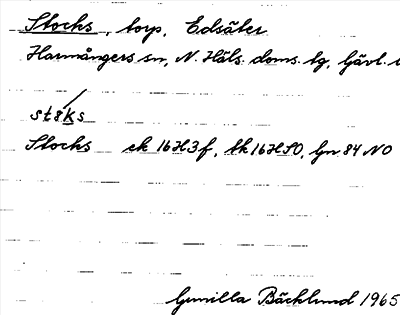 Stocks, torp, Edsäter
Harmångers sn, N. Häls. doms. tg, Gävl.
stɞks
Stocks ek 16H3f, tk 16HSO, Gn. 84 NO
Gunilla Bäcklund 1965